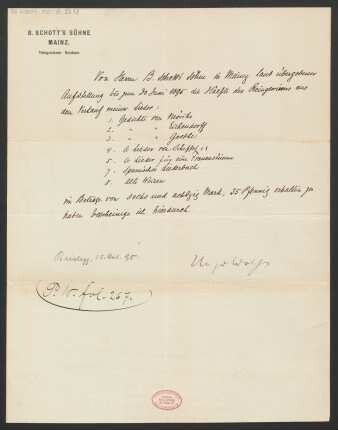 B. SCHOTT'S SÖHNE
MAINZ.
Von Herrn B. Schotts Söhne in Mainz laut übergebener
Aufstellung bis zum 30 Juni 1895 die Hälfte des Reingewinns aus
dem Verkauf meiner Lieder:
1. Gedichte von Mörike
2. " " Eichendorff
3. " " Goethe
4. 6 Lieder von Scheffel
5. 6 Lieder für eine Frauenstimme
7. Spanisches Liederbuch
8. Alte Weisen
im Betrage von sechs und achtzig Mark, 35 Pfennig erhalten zu
haben bescheinige ich hierdurch
95.
Hugo Wolf